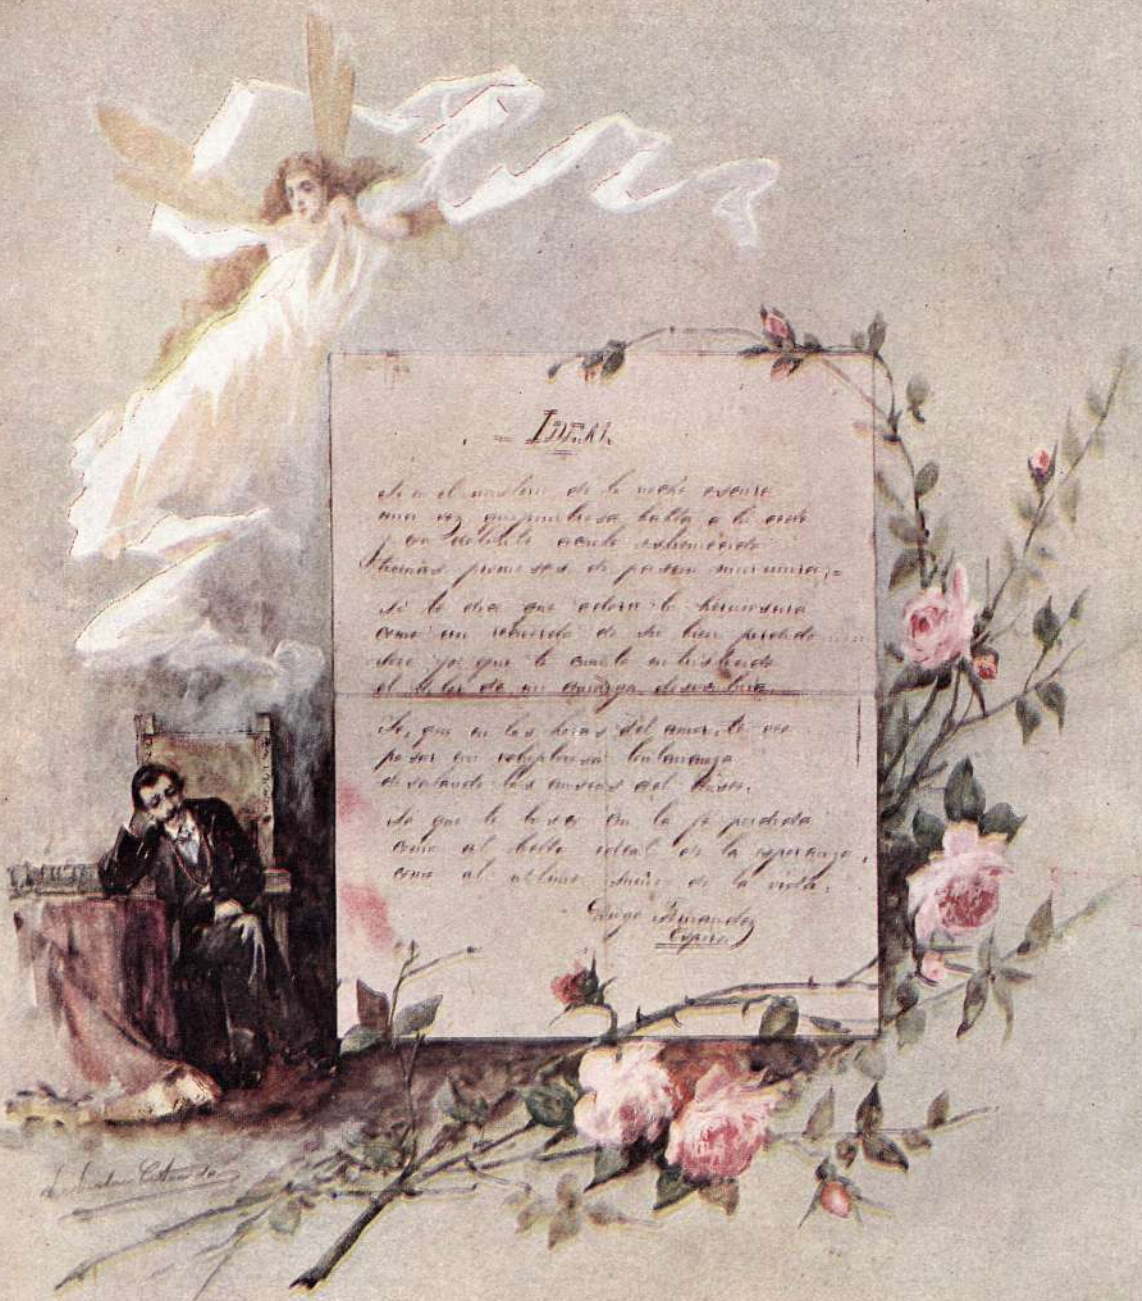 IDEAL
Si en el misterio de la noche oscura
una voz quejumbrosa habla a tu oido
y con delirante acento estremecido
promesas de pasion murmura;
Si te dice que adora tu hermosura
como un recuerdo de su bien perdido
sere yo que te cuento entristecido
el de mi amarga desventura.
Yo, que en las horas del amor, te veo
pasar en voluptuosa
desatando las ansias del deseo.
Yo que te busco en la fe perdida
como al bello ideal de la esperanza,
como al ultimo sueño de la vida.
Diego Fernandez
Espiro